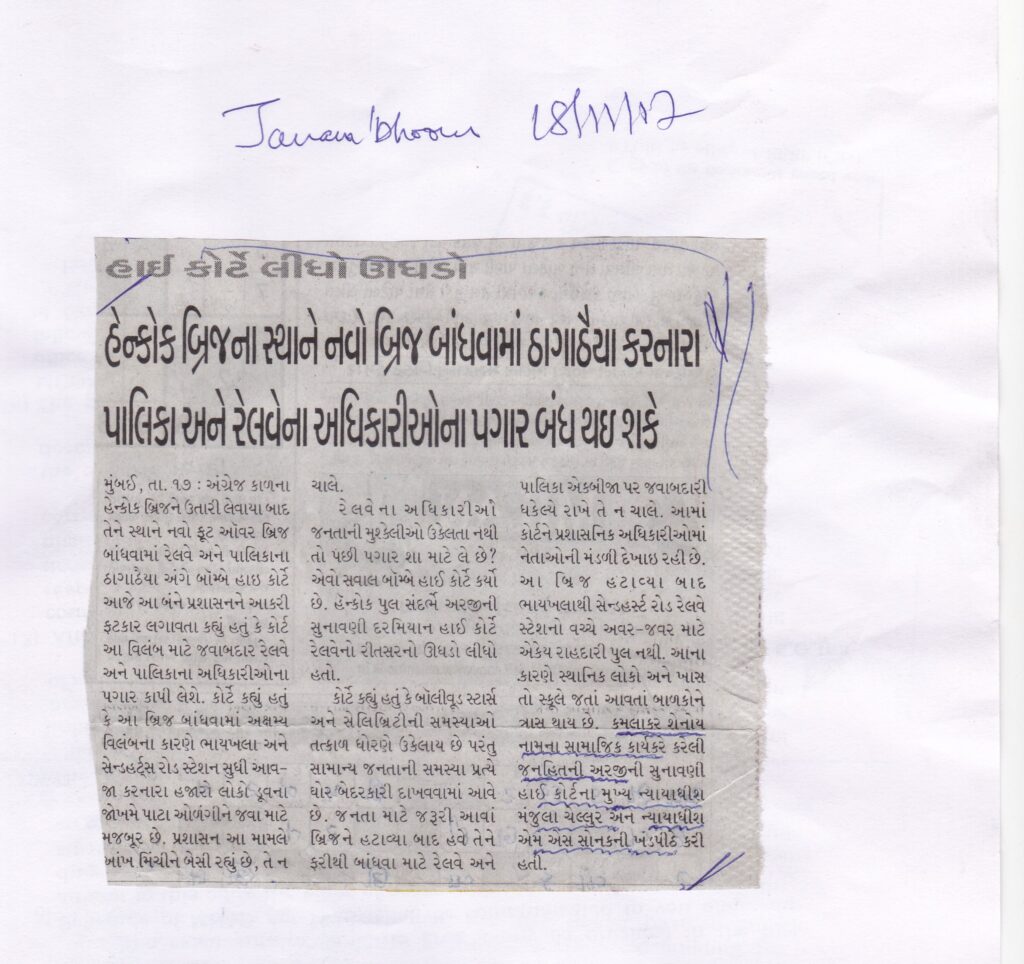 Janmabhoomi 18/11/17
હાઈ કોર્ટે લીધો ઊધડો
હેન્કોક બ્રિજના સ્થાને નવો બ્રિજ બાંધવામાં ઠાગાઠૈયા કરનારા
પાલિકા અને રેલવેના અધિકારીઓના પગાર બંધ થઇ શકે
મુંબઈ, તા. ૧૭ : અંગ્રેજ કાળના
હેન્કોક બ્રિજને ઉતારી લેવાયા બાદ
તેને સ્થાને નવો ફૂટ ઑવર બ્રિજ
બાંધવામાં રેલવે અને પાલિકાના
ઠાગાઠૈયા અંગે બૉમ્બે હાઇ કોર્ટે
આજે આ બંને પ્રશાસનને આકરી
ફટકાર લગાવતા કહ્યું હતું કે કોર્ટ
આ વિલંબ માટે જવાબદાર રેલવે
અને પાલિકાના અધિકારીઓના
પગાર કાપી લેશે. કોર્ટે કહ્યું હતું
કે આ બ્રિજ બાંધવામાં અક્ષમ્ય
વિલંબના કારણે ભાયખલા અને
સેન્ડહર્ટ્સ રોડ સ્ટેશન સુધી આવ-
જા કરનારા હજારો લોકો ડૂવનો
જોખમે પાટા ઓળંગીને જવા માટે
મજબૂર છે. પ્રશાસન આ મામલે
આંખ મિંચીને બેસી રહ્યું છે, તે ન
ચાલે.
રેલવેના અધિકારીઓ
જનતાની મુશ્કેલીઓ ઉકેલતા નથી
તો પછી પગાર શા માટે લે છે?
એવો સવાલ બૉમ્બે હાઈ કોર્ટે કર્યો
છે. હૅન્કોક પુલ સંદર્ભે અરજીની
સુનાવણી દરમિયાન હાઈ કોર્ટે
રેલવેનો રીતસરનો ઊધડો લીધો
હતો.
કોર્ટે કહ્યું હતું કે બૉલીવૂડ સ્ટાર્સ
અને સેલિબ્રિટીની સમસ્યાઓ
તત્કાળ ધોરણે ઉકેલાય છે પરંતુ
સામાન્ય જનતાની સમસ્યા પ્રત્યે
ઘોર બેદરકારી દાખવવામાં આવે
છે. જનતા માટે જરૂરી આવાં
બ્રિજને હટાવ્યા બાદ હવે તેને
ફરીથી બાંધવા માટે રેલવે અને
પાલિકા એકબીજા પર જવાબદારી
ધકેલ્યે રાખે તે ન ચાલે. આમાં
કોર્ટને પ્રશાસનિક અધિકારીઓમાં
નેતાઓની મંડળી દેખાઇ રહી છે.
આ બ્રિજ હટાવ્યા બાદ
ભાયખલાથી સેન્ડહર્સ્ટ રોડ રેલવે
સ્ટેશનો વચ્ચે અવર-જવર માટે
એકેય રાહદારી પુલ નથી. આના
કારણે સ્થાનિક લોકો અને ખાસ
તો સ્કૂલે જતાં આવતાં બાળકોને
ત્રાસ થાય છે. કમલાકર શેનોય
નામના સામાજિક કાર્યકર કરેલી
જનહિતની અરજીની સુનાવણી
હાઈ કોર્ટના મુખ્ય ન્યાયાધીશ
મંજુલા ચલ્લુર અને ન્યાયાધીશ
એમ એસ સોનકની ખંડપીઠે કરી
હતી.